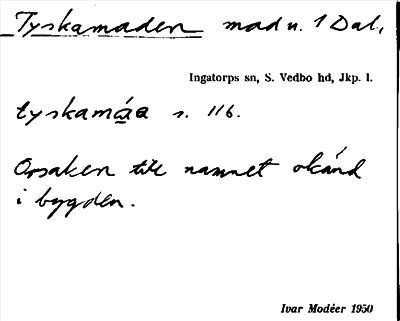 Tyskamaden mad u. 1 Dal,
Ingatorps sn, S. Vedbo hd, Jkp. l.
tyskamáa s. 116.
Orsaken till namnet okänd
i bygden.
Ivar Modéer 1950